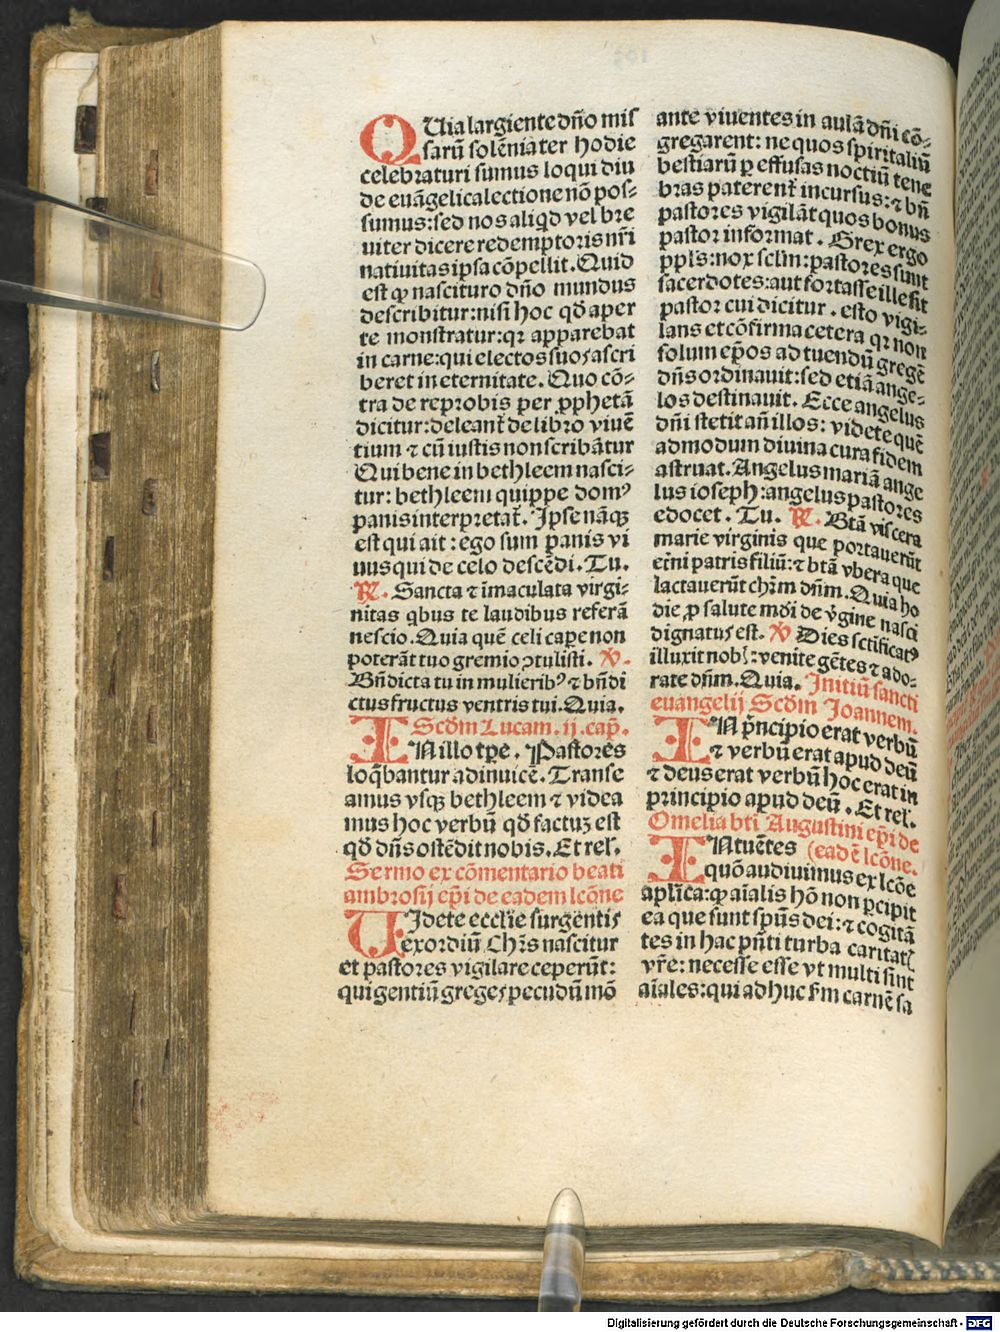 QUia largiente dño mis
sarũ solẽnia ter hodie
celebraturi sumus loqui diu
de euãgelica lectione nõ pos-
sumus: sed nos aliqd vel bre
uiter dicere redemptoris nr̃i
natiuitas ipsa cõpellit. Quid
est ꝙ nascituro dño mundus
describitur: nisi hoc qđ aper
te monstratur: qꝛ apparebat
in carne: qui electos suos ascri
beret in eternitate. Quo cõ-
tra de reprobis per ꝓphetã
dicitur: deleant̃ de libro viuẽ
tium ⁊ cũ iustis non scribãtur
Qui bene in bethleem nasci-
tur: bethleem quippe domꝰ
panis interpretat̃. Ipse nãqꝫ
est qui ait: ego sum panis vi
uus qui de celo descẽdi. Tu.
℟. Sancta ⁊ ĩmaculata virgi-
nitas qbus te laudibus referã
nescio. Quia quẽ celi capere non
poterãt tuo gremio ꝯtulisti. ℣.
Bñdicta tu in mulieribꝰ ⁊ bñdi
ctus fructus ventris tui. Quia.
Scđm Lucam. ij. cap̃.
IN illo tp̃e. Pastores
loq̃bantur adinuicẽ. Transe
amus vsqꝫ bethleem ⁊ videa
mus hoc verbũ qđ factuꝫ est
qđ dñs ostẽdit nobis. Et rel̃.
Sermo ex cõmentario beati
ambrosij ep̃i de eadem lcõne
UIdete ecclie surgentis
exordiũ. Chr̃s nascitur
et pastores vigilare ceperũt:
qui gentiũ greges pecudũ mõ
ante viuentes in aulã dñi cõ-
gregarent: ne quos spiritaliũ
bestiarũ ꝑ effusas noctiũ tene
bras paterent̃ incursus: ⁊ bñ
pastores vigilãt quos bonus
pastor informat. Grex ergo
ppl̃s: nox scl̃m: pastores sunt
sacerdotes: aut fortasse ille sit
pastor cui dicitur. esto vigi-
lans et cõfirma cetera qꝛ non
solum ep̃os ad tuendũ gregẽ
dñs ordinauit: sed etiã ange-
los destinauit. Ecce angelus
dñi stetit añ illos: videte quẽ
admodum diuina cura fidem
astruat. Angelus mariã ange
lus ioseph: angelus pastores
edocet. Tu. ℟. Btã viscera
marie virginis que portauerũt
et̃ni patris filiũ: ⁊ btã vbera que
lactauerũt chr̃m dñm. Quia ho
die ꝓ salute mõi de ṽgine nasci
dignatus est. ℣ Dies sctificatꝰ
illuxit nobꝭ: venite gẽtes ⁊ ado-
rate dñm. Quia. Initiũ sancti
euangelij Scđm Joannem.
IN pr̃ncipio erat verbũ
⁊ verbũ erat apud deũ
⁊ deus erat verbũ hoc erat in
principio apud deũ. Et rel̃.
Omelia bti Augustini ep̃i de
INtuẽtes (eadẽ lcõne.
quõ audiuimus ex lcõe
apl̃ica: ꝙ aĩalis hõ non ꝑcipit
ea que sunt spũs dei: ⁊ cogitã
tes in hac pñti turba caritatꝭ
vr̃e: necesse esse vt multi sint
aĩales: qui adhuc s̃m carnẽ sa
Digitalisierung gefördert durch die Deutsche Forschungsgemeinschaft - DFG